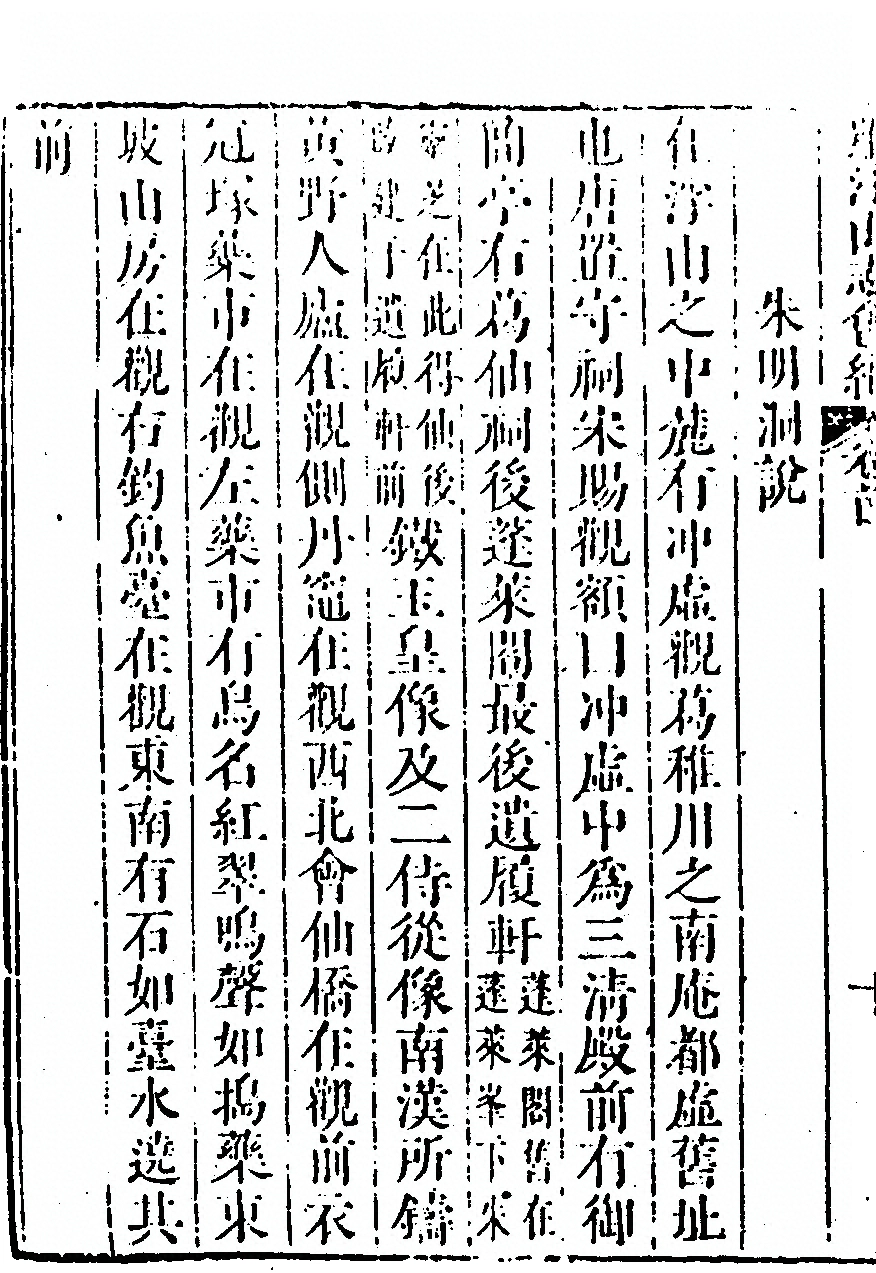 羅浮山志會編 卷首 十
朱明洞說
在浮山之中麓有冲虛觀葛稚川之南庵都虛舊址
也唐置守祠宋賜觀額曰冲虛中為三清殿前有御
簡亭右葛仙祠後蓬萊閣最後遺履軒蓬萊閣舊在蓬萊峯下宋
芝在此得仙後建于遺履軒前鐵玉皇像及二侍從像南漢所鑄
黃野人廬在觀側丹竈在觀西北會仙橋在觀前衣
冠塚藥市在觀左藥市有鳥名紅翠鳴聲如搗藥東
坡山房在觀右釣魚臺在觀東南有石如臺水遶其
前